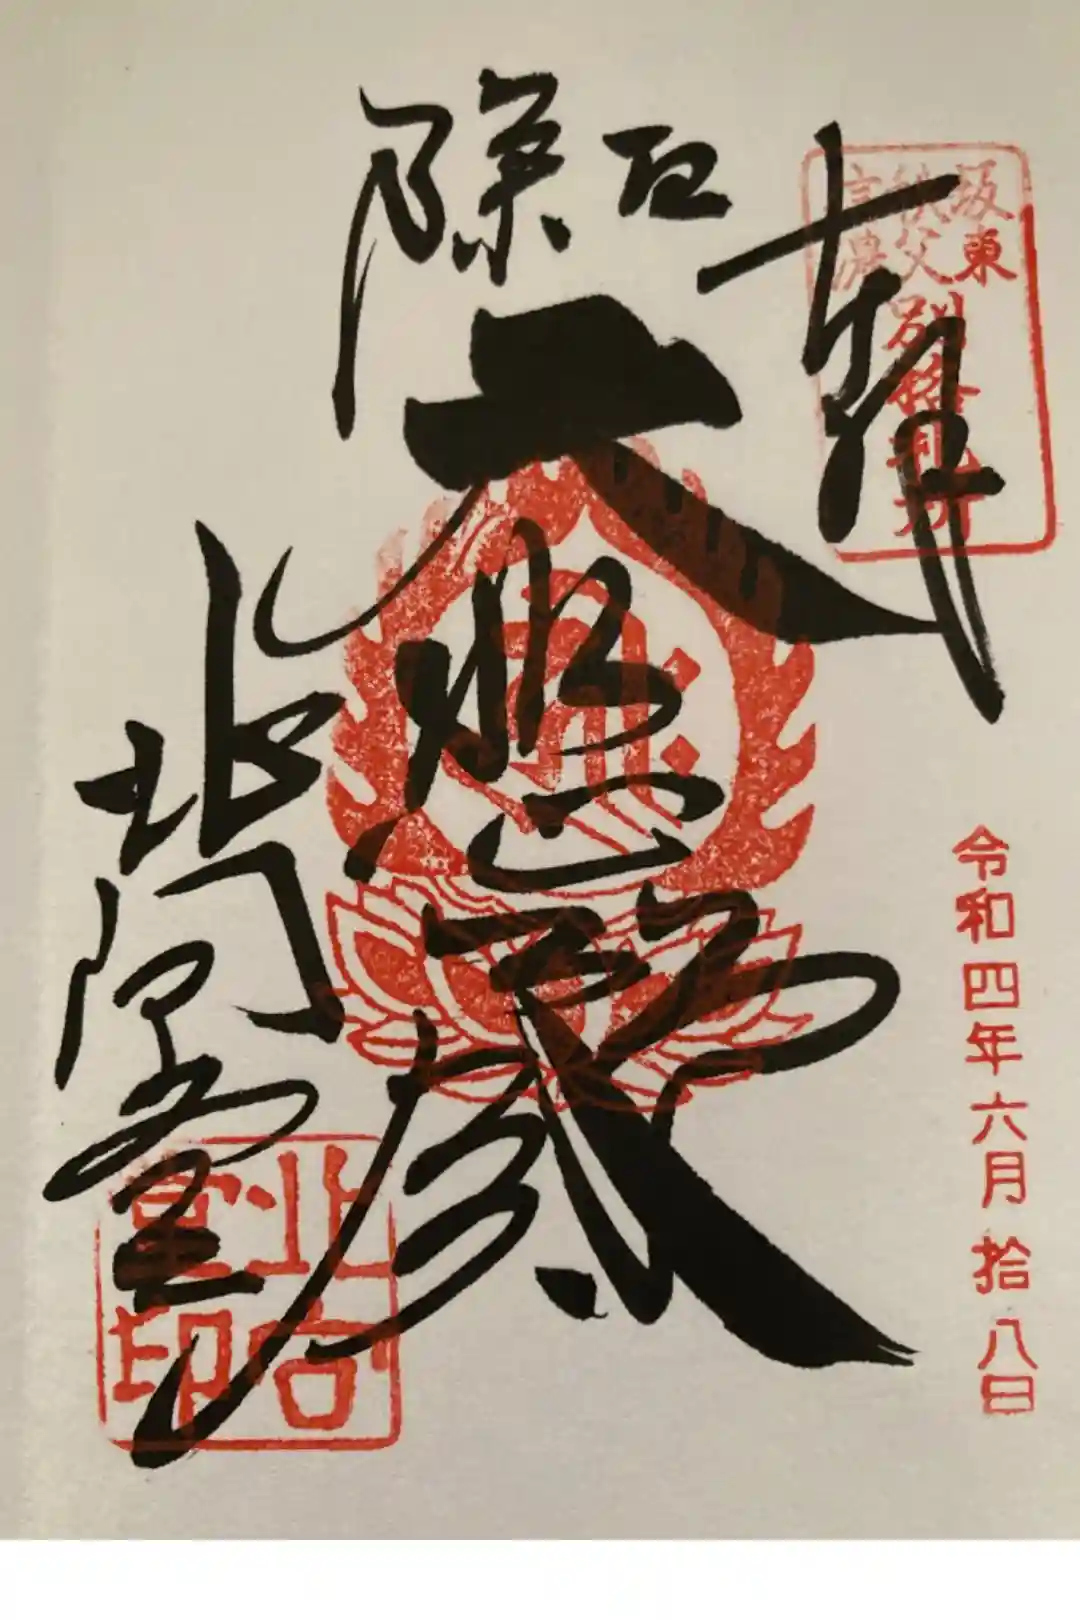 坂東
秩父
別格札所
奉拝
厄除
大悲殿
北向
令和四年六月拾八日
北向
堂印